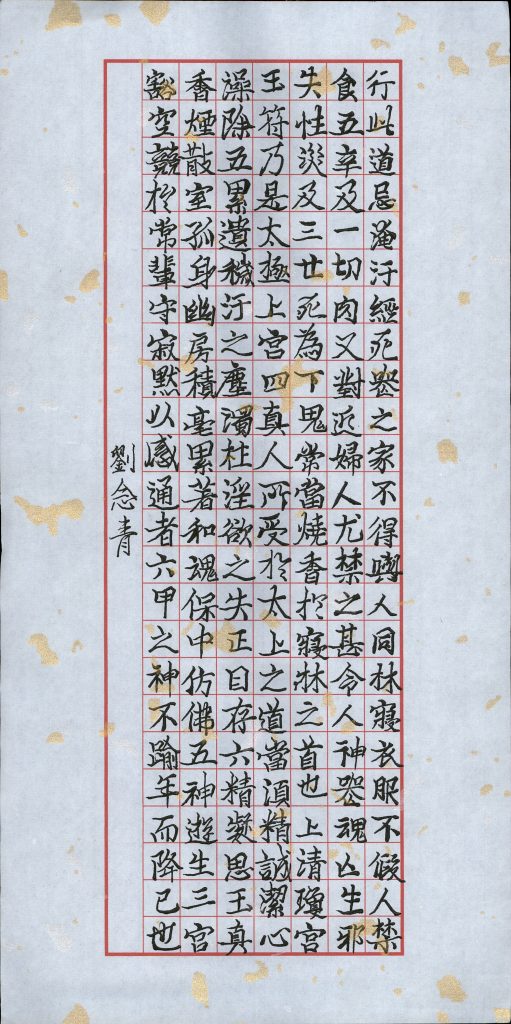 行此道忌淹汙經死喪之家不得與人同牀寢衣服不假人禁
食五辛及一切肉又對近婦人尤禁之甚令人神喪魂亡生邪
失性災及三世死為下鬼常當燒香於寢牀之首也上清瓊宮
玉符乃是太極上宮四真人所受於太上之道當須精誠潔心
澡除五累遺穢汙之塵濁杜淫欲之失正目存六精凝思玉真
香煙散室孤身幽房積毫累著和魂保中仿佛五神遊生三宮
豁空競於常輩守寂默以感通者六甲之神不踰年而降已也
劉念青